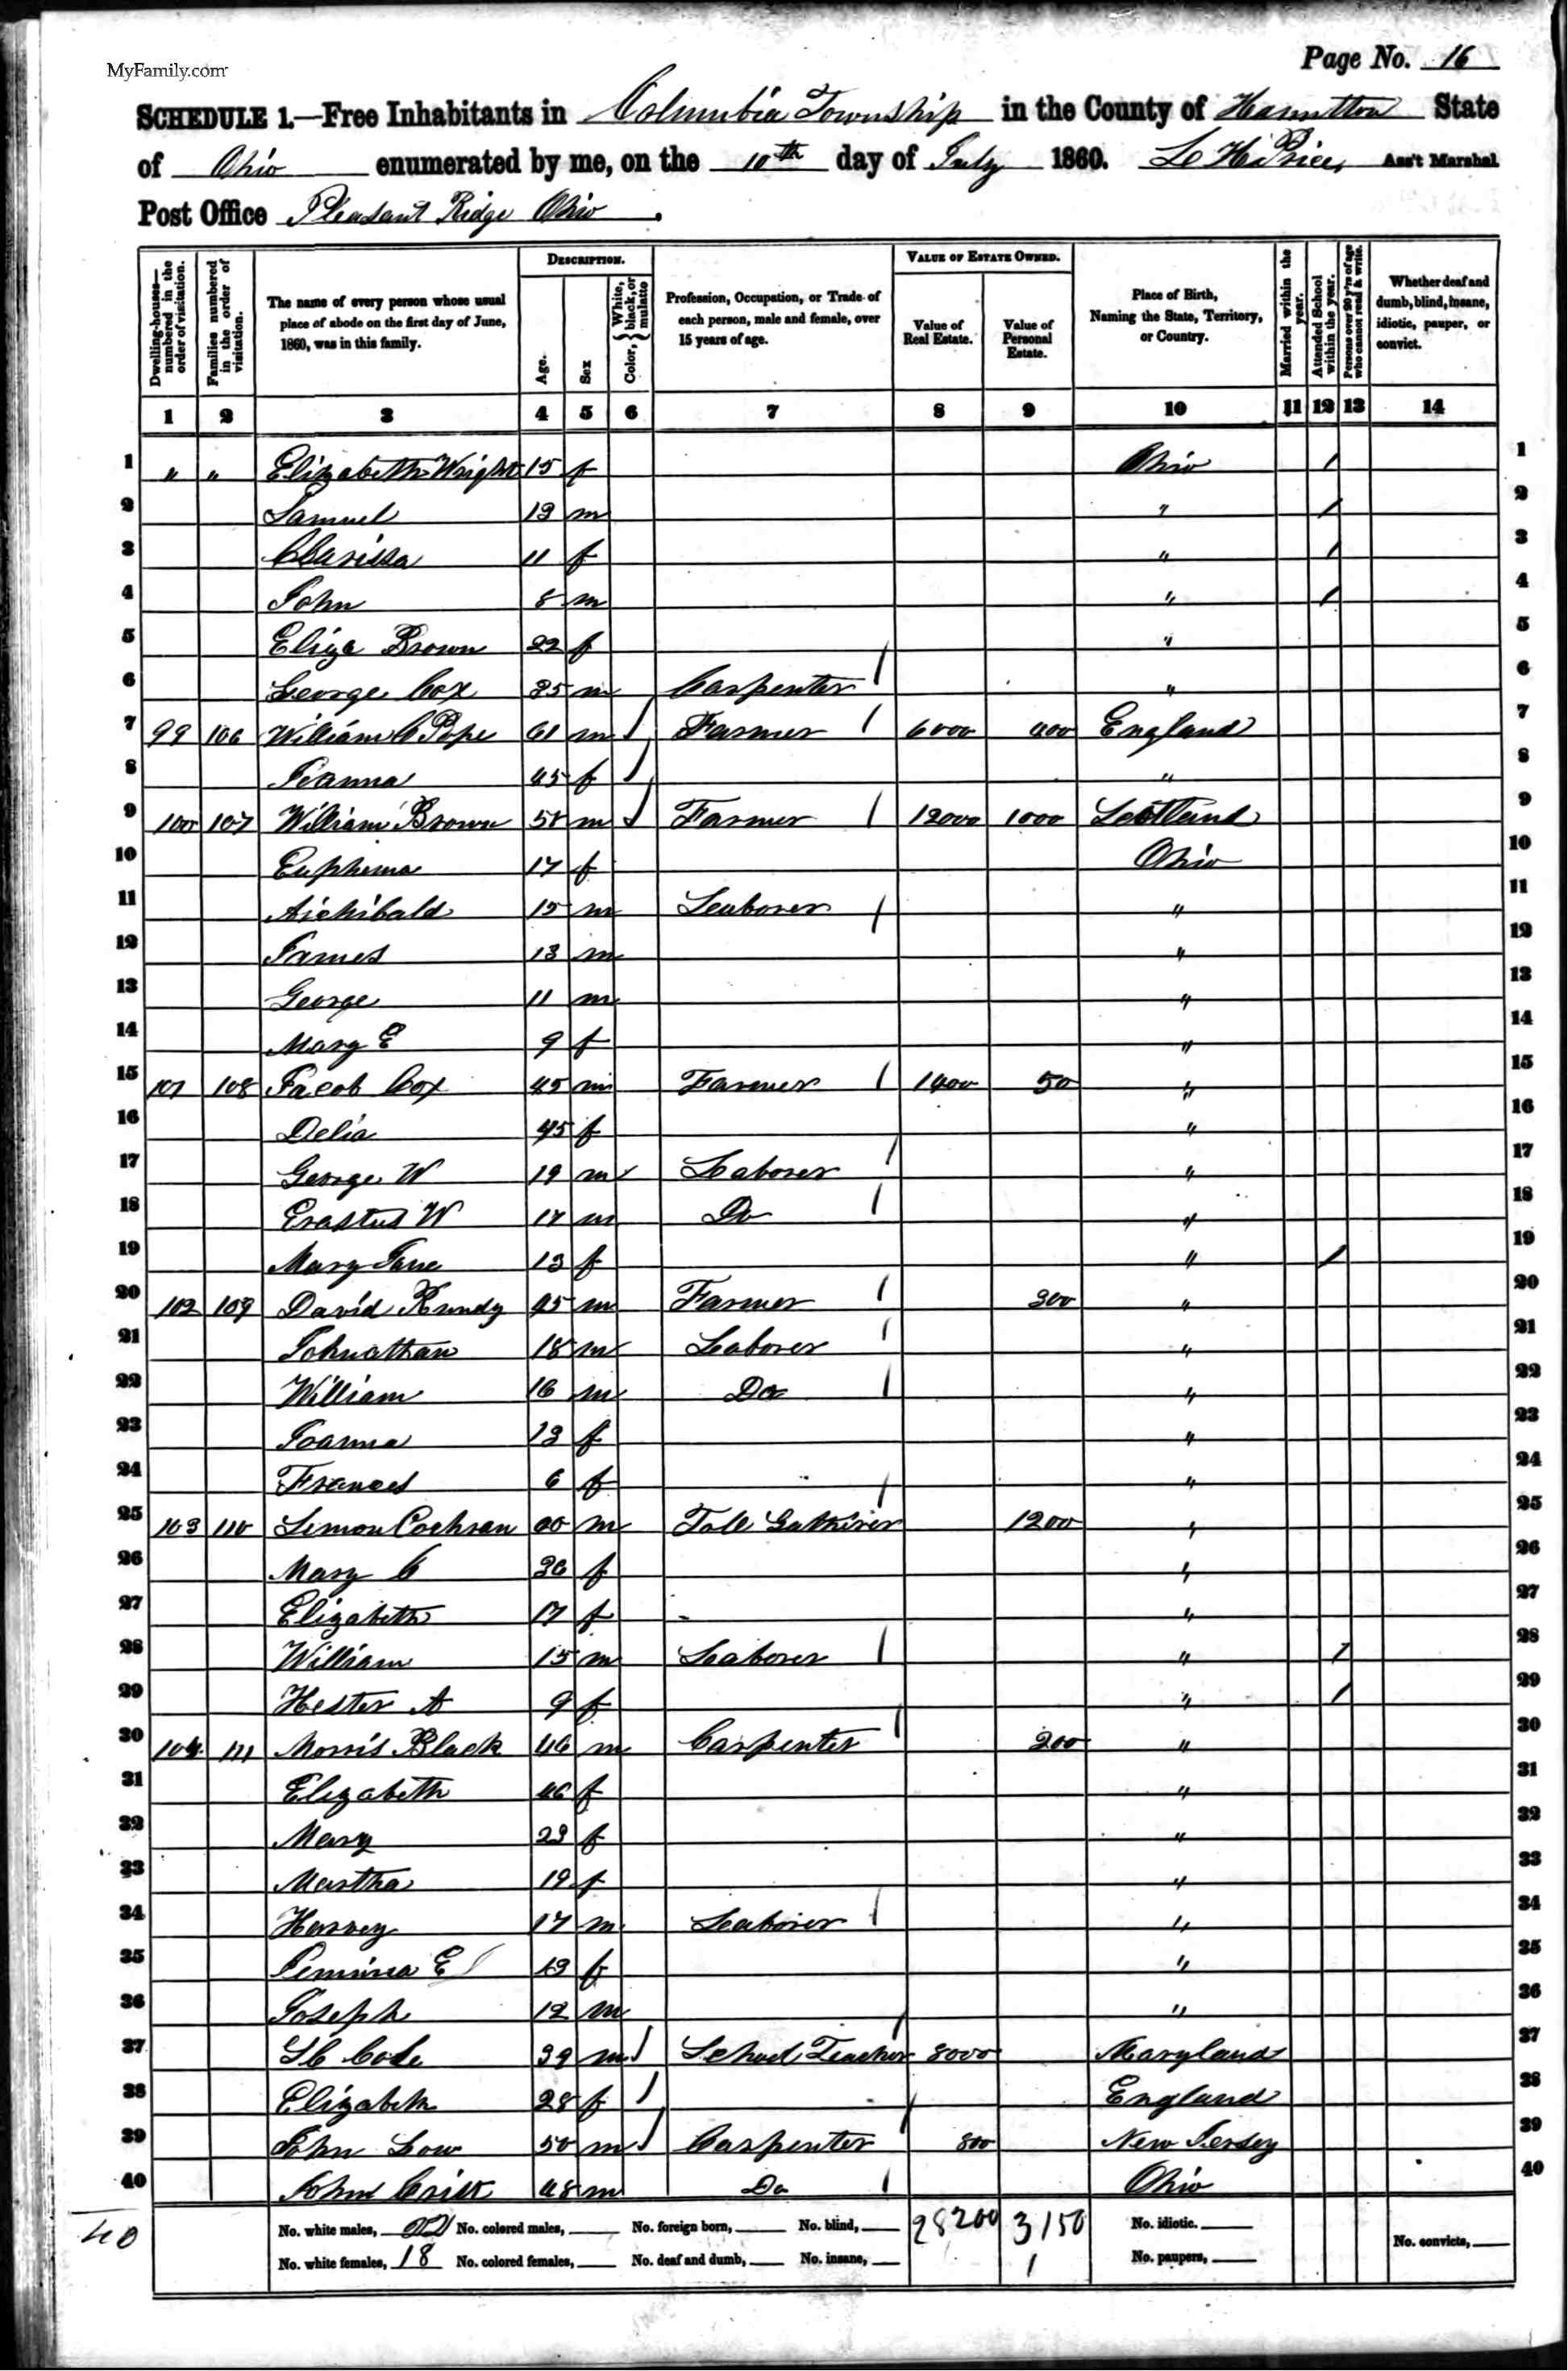 Page No. 16
MyFamily.com
SCHEDULE 1.—Free Inhabitants in Columbia Township in the County of Hamilton State
of Ohio enumerated by me, on the 10th day of July 1860. L H Price, Ass't Marshal
Post Office Pleasant Ridge Ohio.
Dwelling-houses—numbered in the order of visitation.
Families numbered in the order of visitation.
The name of every person whose usual place of abode on the first day of June, 1860, was in this family.
DESCRIPTION.
Age.
Sex
Color, { White, black, or mulatto
Profession, Occupation, or Trade of each person, male and female, over 15 years of age.
VALUE OF ESTATE OWNED.
Value of Real Estate.
Value of Personal Estate.
Place of Birth, Naming the State, Territory, or Country.
Married within the year.
Attended School within the year.
Persons over 20 y'rs of age who cannot read & write.
Whether deaf and dumb, blind, insane, idiotic, pauper, or convict.
1 2 3 4 5 6 7 8 9 10 11 12 13 14
1 " " Elizabeth Wright 15 f Ohio / 1
2 Samuel 13 m " / 2
3 Clarissa 11 f " / 3
4 John 8 m " / 4
5 Eliza Brown 22 f " 5
6 George Cox 25 m Carpenter / " 6
7 99 106 William C Pope 61 m / Farmer / 6000 400 England 7
8 Joanna 45 f / " 8
9 100 107 William Brown 58 m / Farmer / 12000 1000 Scotland 9
10 Euphema 17 f Ohio 10
11 Archibald 15 m Laborer / " 11
12 James 13 m " 12
13 George 11 m " 13
14 Mary E 9 f " 14
15 101 108 Jacob Cox 45 m Farmer / 1400 50 " 15
16 Delia 45 f " 16
17 George W 19 m Laborer / " 17
18 Erastus W 17 m Do / " 18
19 Mary Jane 13 f " / 19
20 102 109 David 45 m Farmer / 300 " 20
21 Johnathan 18 m Laborer / " 21
22 William 16 m Do / " 22
23 Joanna 13 f " 23
24 Frances 6 f " 24
25 103 110 Simon Cochran 40 m Tole Gatherer / 1200 " 25
26 Mary C 36 f " 26
27 Elizabeth 17 f - " 27
28 William 15 m Laborer / " / 28
29 Hester A 9 f " / 29
30 104 111 Morris Black 46 m Carpenter / 200 " 30
31 Elizabeth 46 f " 31
32 Mary 23 f " 32
33 Martha 19 f " 33
34 Harvey 17 m Laborer / " 34
35 E 13 f " 35
36 Joseph 12 m " 36
37 Cole 39 m / School Teacher / 8000 Maryland 37
38 Elizabeth 28 f / England 38
39 John Low 50 m / Carpenter / 800 New Jersey 39
40 John 48 m Do / Ohio 40
40
No. white males, 22 No. colored males, No. foreign born, No. blind, 28200 3150 No. idiotic.
No. white females, 18 No. colored females, No. deaf and dumb, No. insane, 1 No. paupers, No. convicts,